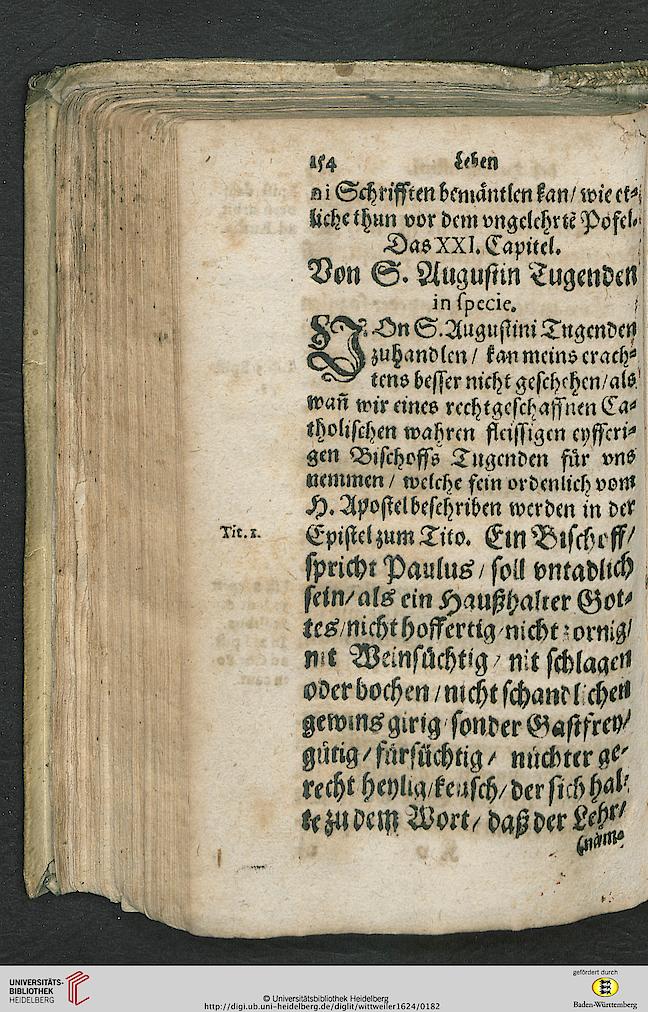 154 Leben
ni Schrifften bemäntlen kan/ wie et⸗
liche thun vor dem vngelehrtē Pöfel.
Das XXI. Capitel.
Von S. Augustin Tugenden
in specie.
VOn S. Augustini Tugenden
zuhandlen / kan meins erach⸗
tens besser nicht geschehen/ als
wañ wir eines rechtgeschaffnen Ca⸗
tholischen wahren fleissigen eyfferi⸗
gen Bischoffs Tugenden für vns
nemmen / welche fein ordenlich vom
H. Apostel beschriben werden in der
Tit. 1.
Epistel zum Tito. Ein Bischoff/
spricht Paulus / soll vntadlich
sein/ als ein Haußhalter Got⸗
tes/ nicht hoffertig/ nicht zornig/
nit Weinsüchtig / nit schlagen
oder bochen / nicht schandlichen
gewins girig/ sonder Gastfrey/
gütig / fürsüchtig / nüchter ge⸗
recht heylig/ keusch/ der sich hal⸗
te zu dem Wort / daß der Lehr/
UNIVERSITÄTS-
BIBLIOTHEK
HEIDELBERG
© Universitätsbibliothek Heidelberg
http://digi.ub.uni-heidelberg.de/diglit/wittweiler1624/0182
gefördert durch
Baden-Württemberg